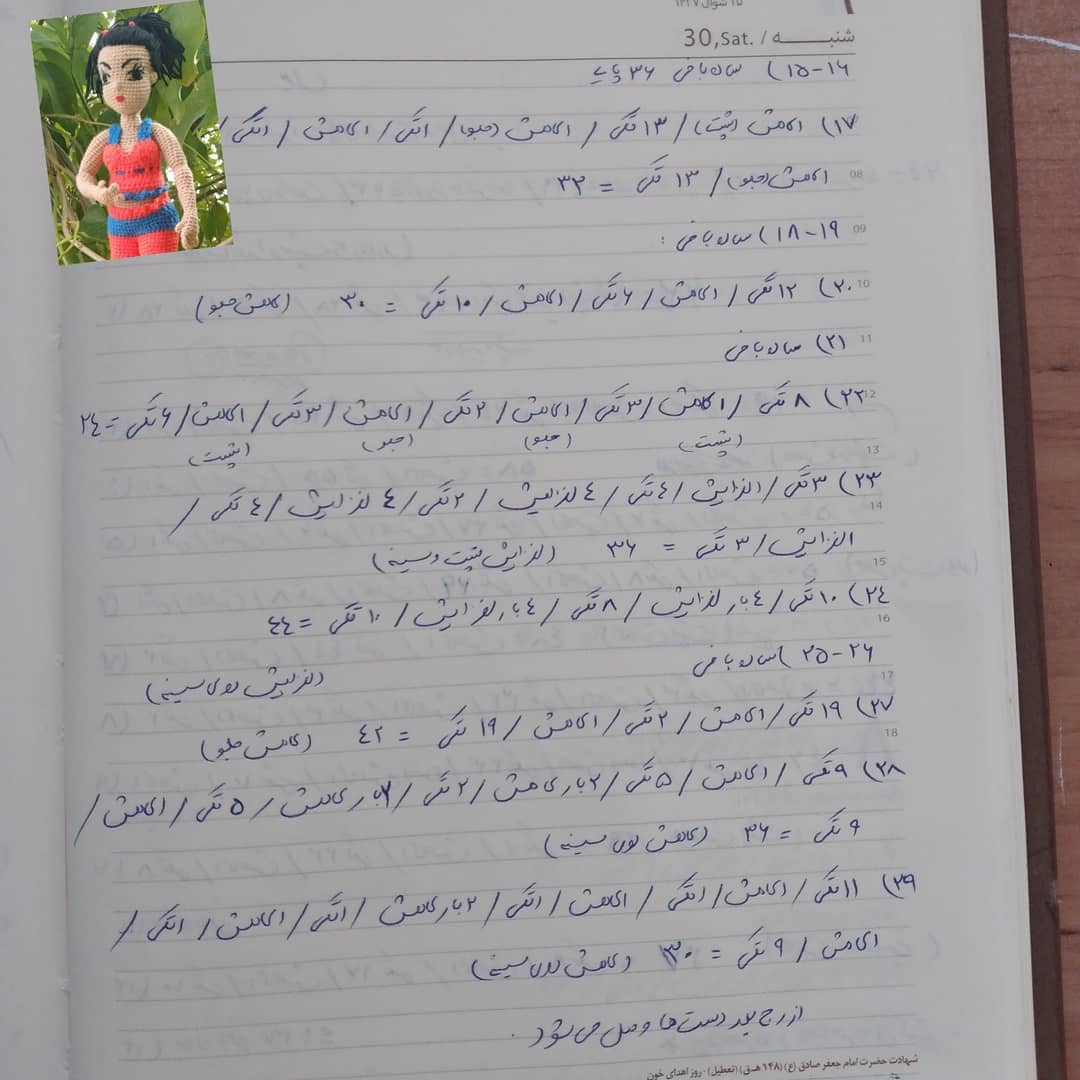 ۱۵ شوال ۱۴۲۷
شنبه / 30,Sat.
۱۵-۱۶) ساده بافی ۳۶ پایه
۱۷) ۱کاهش (پشت) / ۱۳ تکی / ۱کاهش (جلو) / ۱تکی / ۱کاهش / ۱تکی /
۱کاهش (جلو) / ۱۳ تکی = ۳۲
08
۱۸-۱۹) ساده بافی :
09
۲۰) ۱۲ تکی / ۱کاهش / ۶ تکی / ۱کاهش / ۱۰ تکی = ۳۰ (کاهش جلو)
10
۲۱) ساده بافی
11
۲۲) ۸ تکی / ۱کاهش / ۳ تکی / ۱کاهش / ۲ تکی / ۱کاهش / ۳ تکی / ۱کاهش / ۶ تکی = ۲۴
12
(پشت) (جلو) (جلو) (پشت)
13
۲۳) ۳ تکی / ۱افزایش / ۴ تکی / ۴ افزایش / ۲ تکی / ۴ افزایش / ۴ تکی /
14
۱افزایش / ۳ تکی = ۳۶ (افزایش پشت و سینه)
15
۲۴) ۱۰ تکی / ۴ بار افزایش / ۸ تکی / ۴ بار افزایش / ۱۰ تکی = ۴۴
16
۲۵-۲۶) ساده بافی (افزایش روی سینه)
17
۲۷) ۱۹ تکی / ۱کاهش / ۲ تکی / ۱کاهش / ۱۹ تکی = ۴۲ (کاهش جلو)
18
۲۸) ۹ تکی / ۱کاهش / ۵ تکی / ۲ بار کاهش / ۲ تکی / ۲ بار کاهش / ۵ تکی / ۱کاهش /
۹ تکی = ۳۶ (کاهش روی سینه)
۲۹) ۱۱ تکی / ۱کاهش / ۱تکی / ۱کاهش / ۱تکی / ۲ بار کاهش / ۱تکی / ۱کاهش / ۱تکی /
۱کاهش / ۹ تکی = ۳۰ (کاهش روی سینه)
از رج بعد دست ها وصل می شود.
شهادت حضرت امام جعفر صادق (ع) (۱۴۸ هـ.ق) (تعطیل) - روز اهدای خون